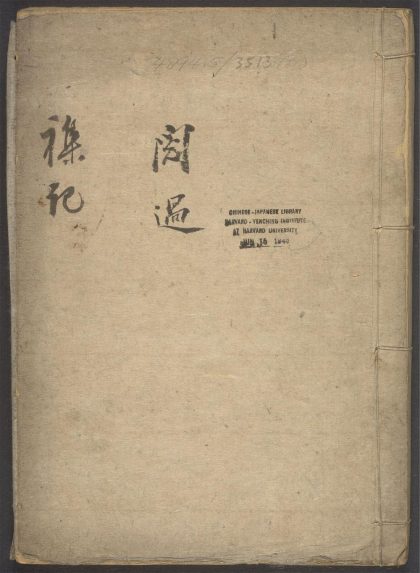 閱過
襍記
CHINESE-JAPANESE LIBRARY
HARVARD-YENCHING INSTITUTE
AT HARVARD UNIVERSITY
JUN 1940